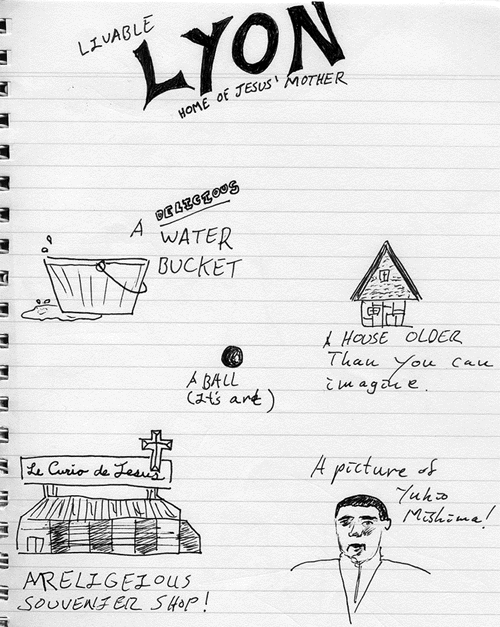 LIVABLE
LYON
HOME OF JESUS' MOTHER
A DELICIOUS
WATER
BUCKET
A HOUSE OLDER
Than you can
imagine.
A BALL
(it's art)
Le Curio de Jesus
A RELIGEIOUS
SOUVENIER SHOP!
A picture of
Yukio
Mishima!